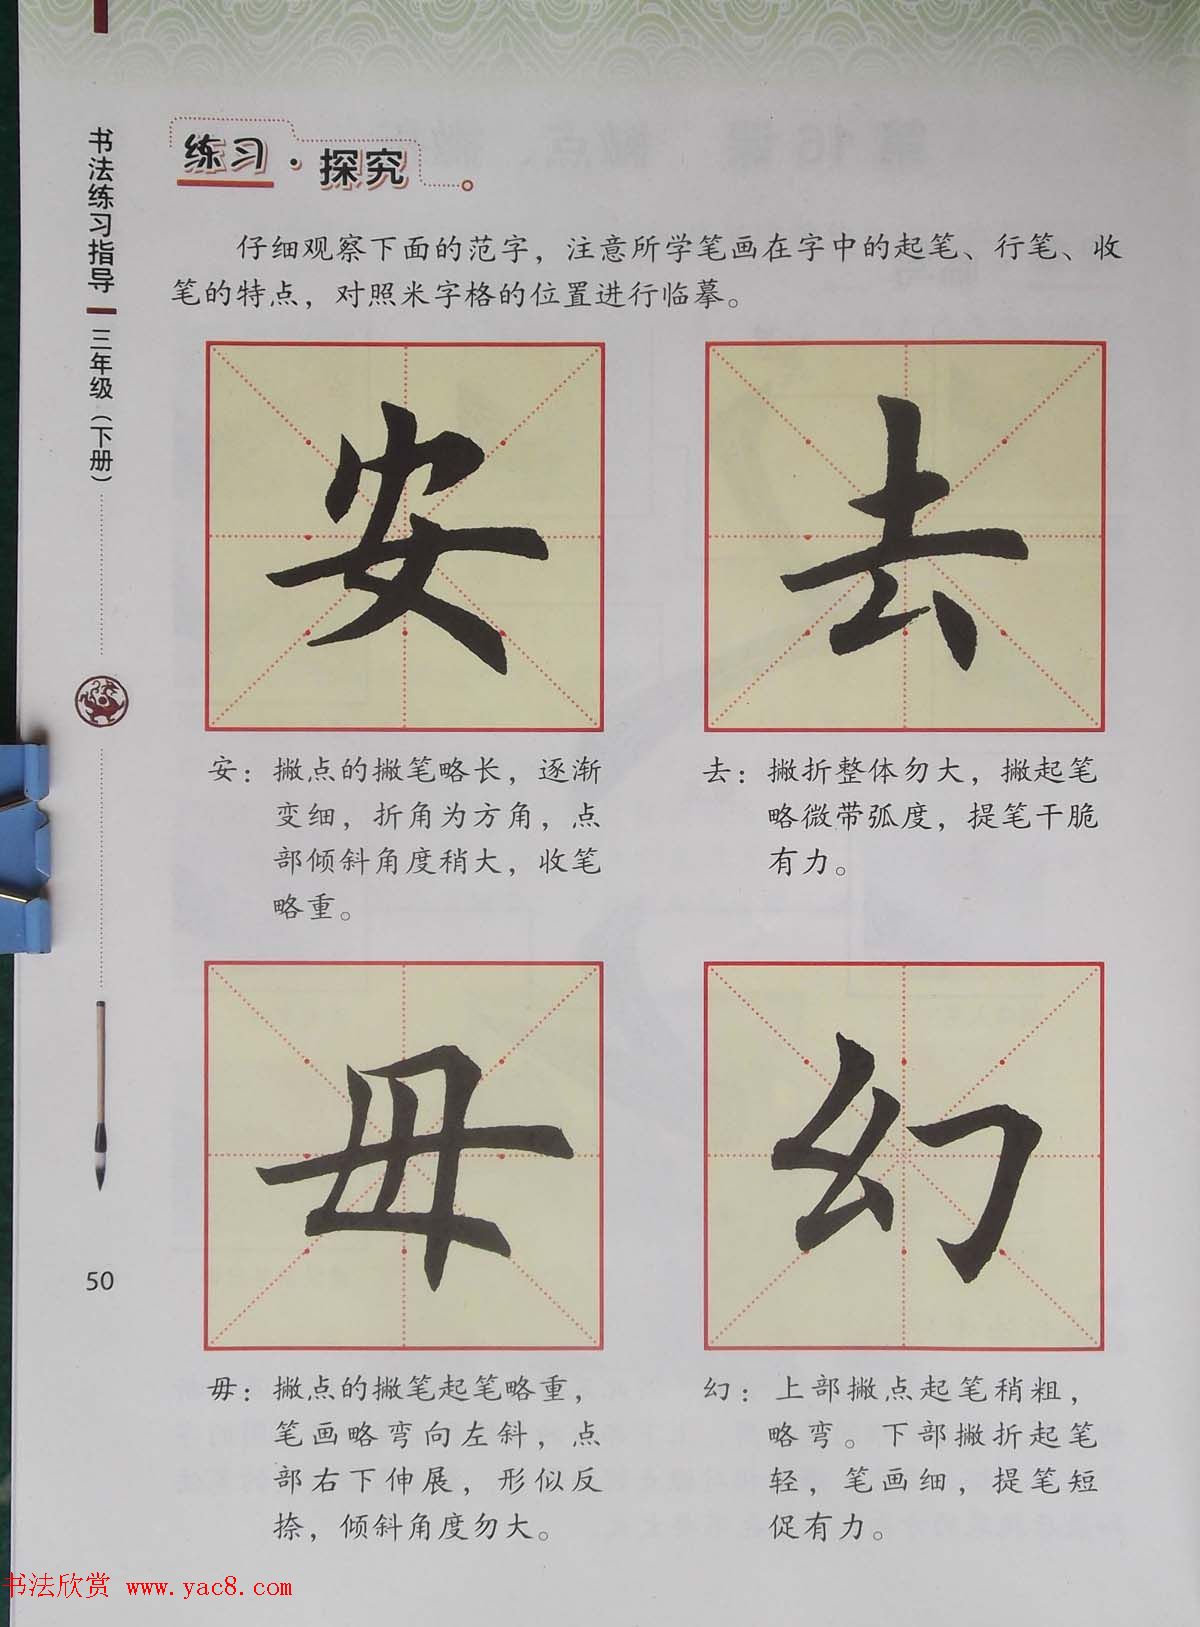 书法练习指导
三年级（下册）
练习·探究
仔细观察下面的范字，注意所学笔画在字中的起笔、行笔、收
笔的特点，对照米字格的位置进行临摹。
安
去
安：撇点的撇笔略长，逐渐
变细，折角为方角，点
部倾斜角度稍大，收笔
略重。
去：撇折整体勿大，撇起笔
略微带弧度，提笔干脆
有力。
毋
幻
毋：撇点的撇笔起笔略重，
笔画略弯向左斜，点
部右下伸展，形似反
捺，倾斜角度勿大。
幻：上部撇点起笔稍粗，
略弯。下部撇折起笔
轻，笔画细，提笔短
促有力。
50
书法欣赏 www.yac8.com